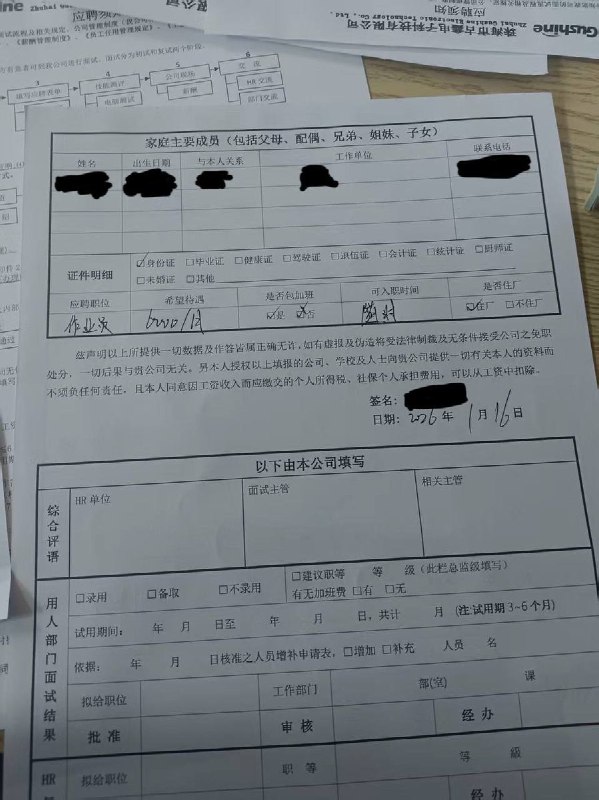 Gushine
珠海市古鑫电子科技有限公司
应聘须知
填写应聘表单
技能测评
电脑测试
公司现场
薪酬
交流
HR交流
部门交流
家庭主要成员（包括父母、配偶、兄弟、姐妹、子女）
姓名 出生日期 与本人关系 工作单位 联系电话
证件明细 ☑身份证 □毕业证 □健康证 □驾驶证 □退伍证 □会计证 □统计证 □厨师证
□未婚证 □其他
应聘职位 希望待遇 是否包加班 可入职时间 是否住厂
作业员 6000/月 ☑是 ☑否 随时 ☑住厂 □不住厂
兹声明以上所提供一切数据及作答皆属正确无讹，如有虚报及伪造将受法律制裁及无条件接受公司之免职
处分，一切后果与贵公司无关。另本人授权以上填报的公司、学校及人士向贵公司提供一切有关本人的资料而
不须负任何责任，且本人同意因工资收入而应缴交的个人所得税、社保个人承担费用，可以从工资中扣除。
签名：
日期：2026年1月16日
以下由本公司填写
综合评语 HR单位 面试主管 相关主管
用人部门面试结果
□录用 □备取 □不录用 □建议职等 等 级（此栏总监级填写）
有无加班费 □有 □无
试用期间： 年 月 日至 年 月 日，共计 月（注:试用期3~6个月）
依据： 年 月 日核准之人员增补申请表，□增加 □补充 人员 名
拟给职位 工作部门 部(室) 课
批准 审核 经办
HR 拟给职位 职等 等 级
经办